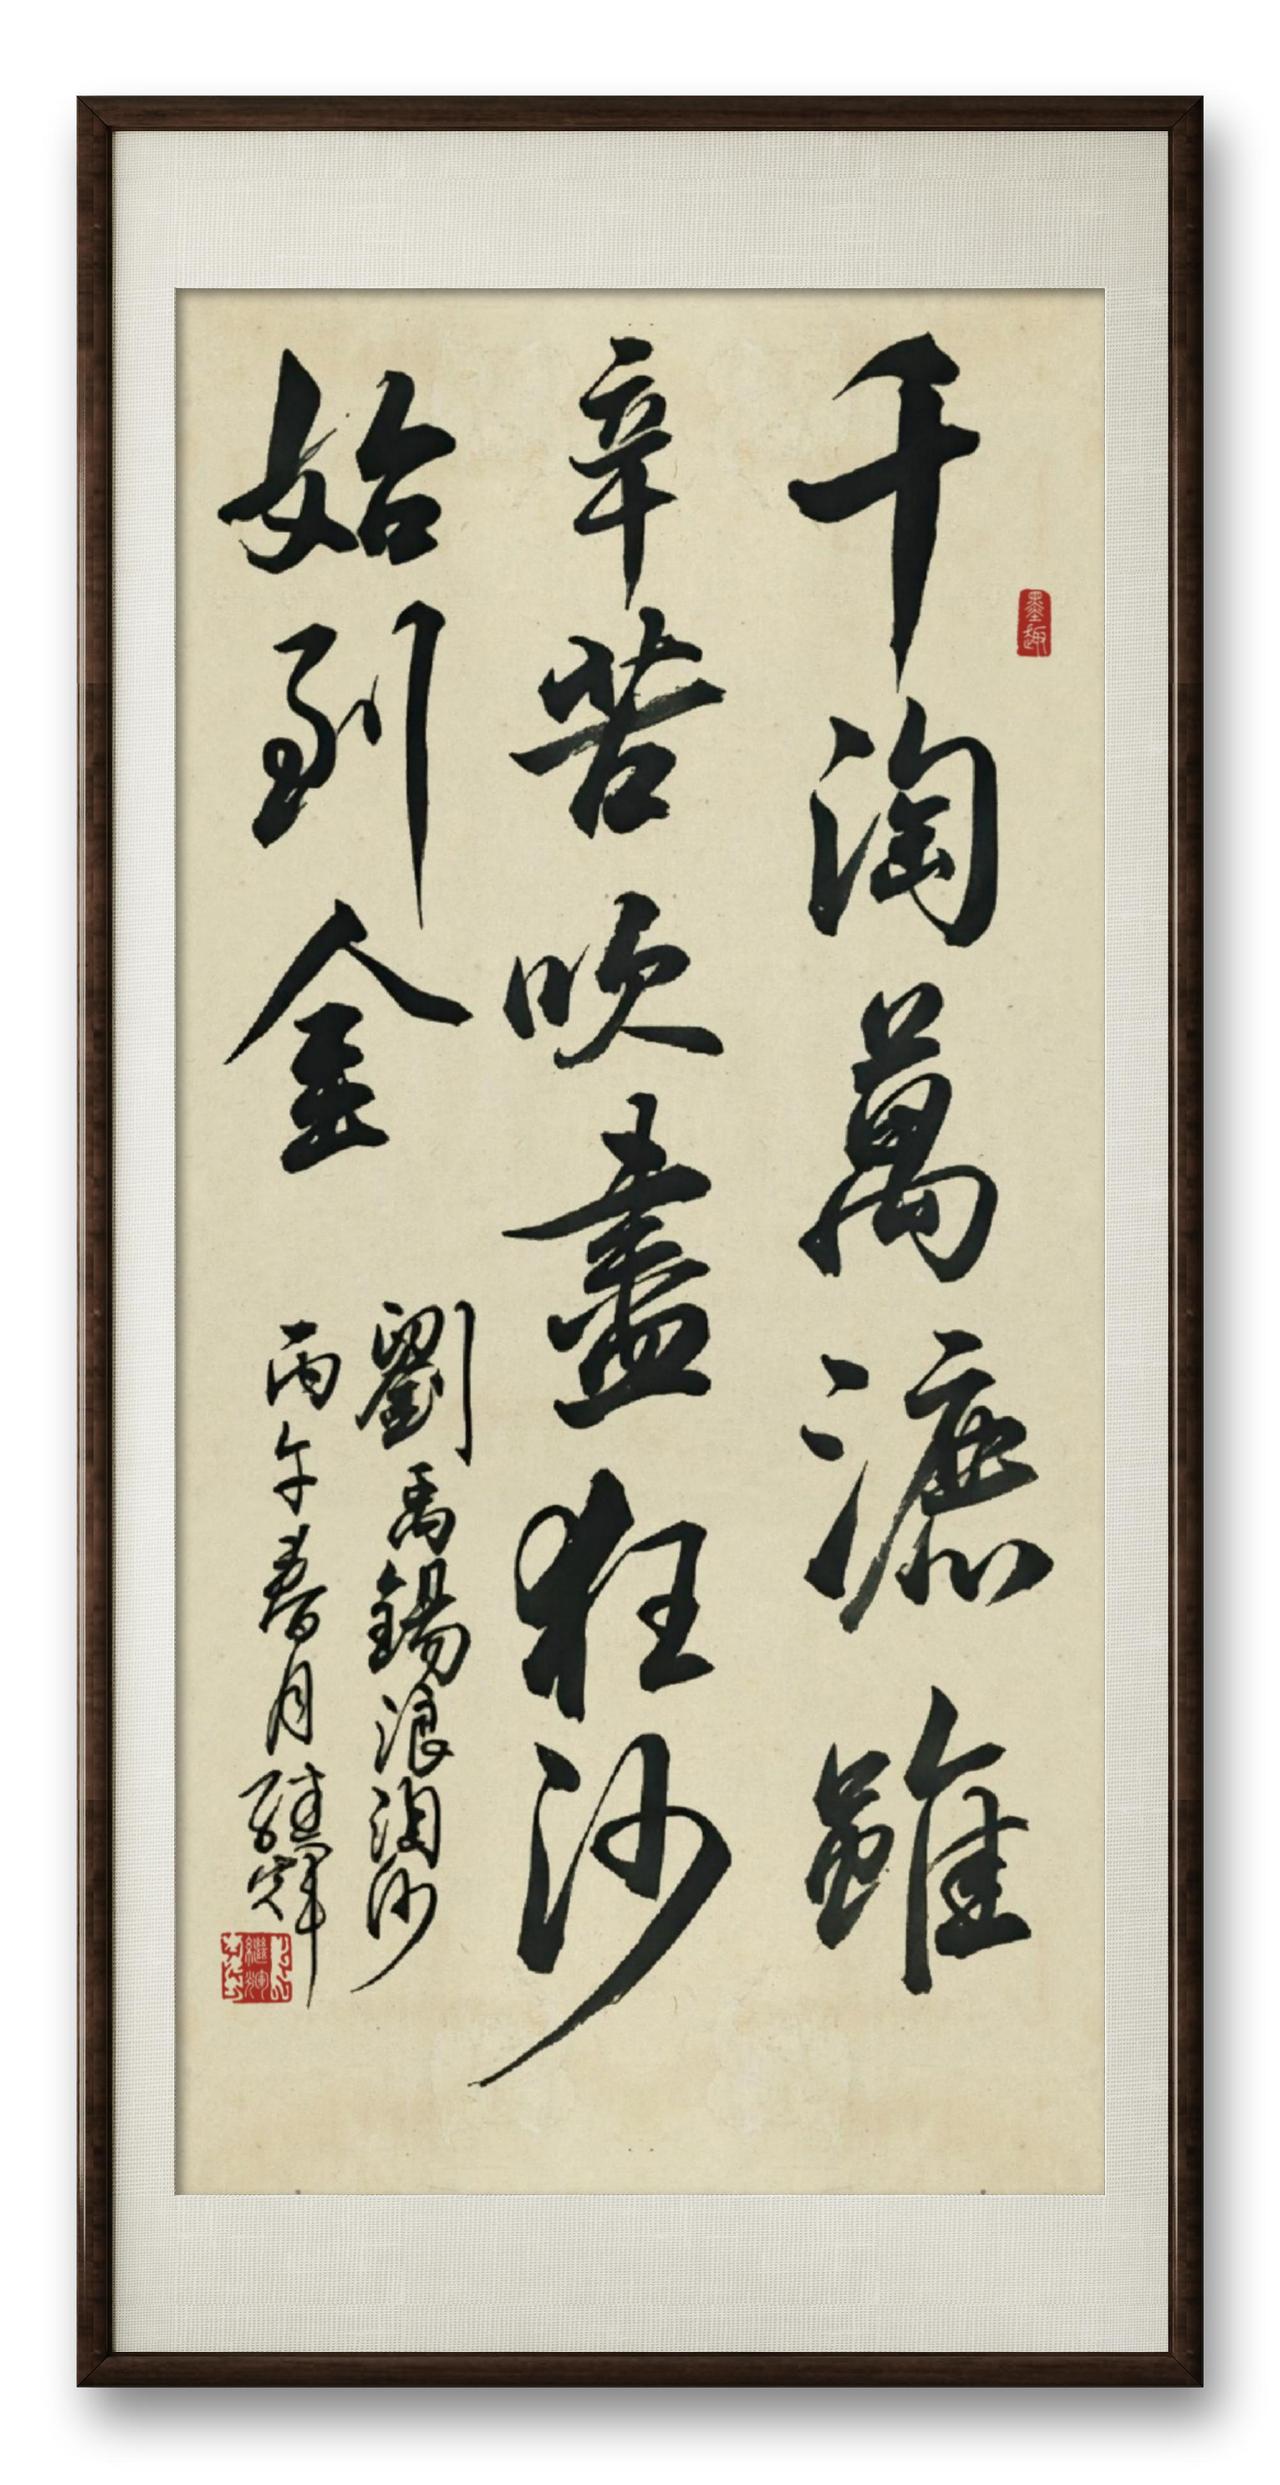 千淘萬漉雖
辛苦吹盡狂沙
始到金
劉禹錫浪淘沙
丙午春月繼輝
墨趣